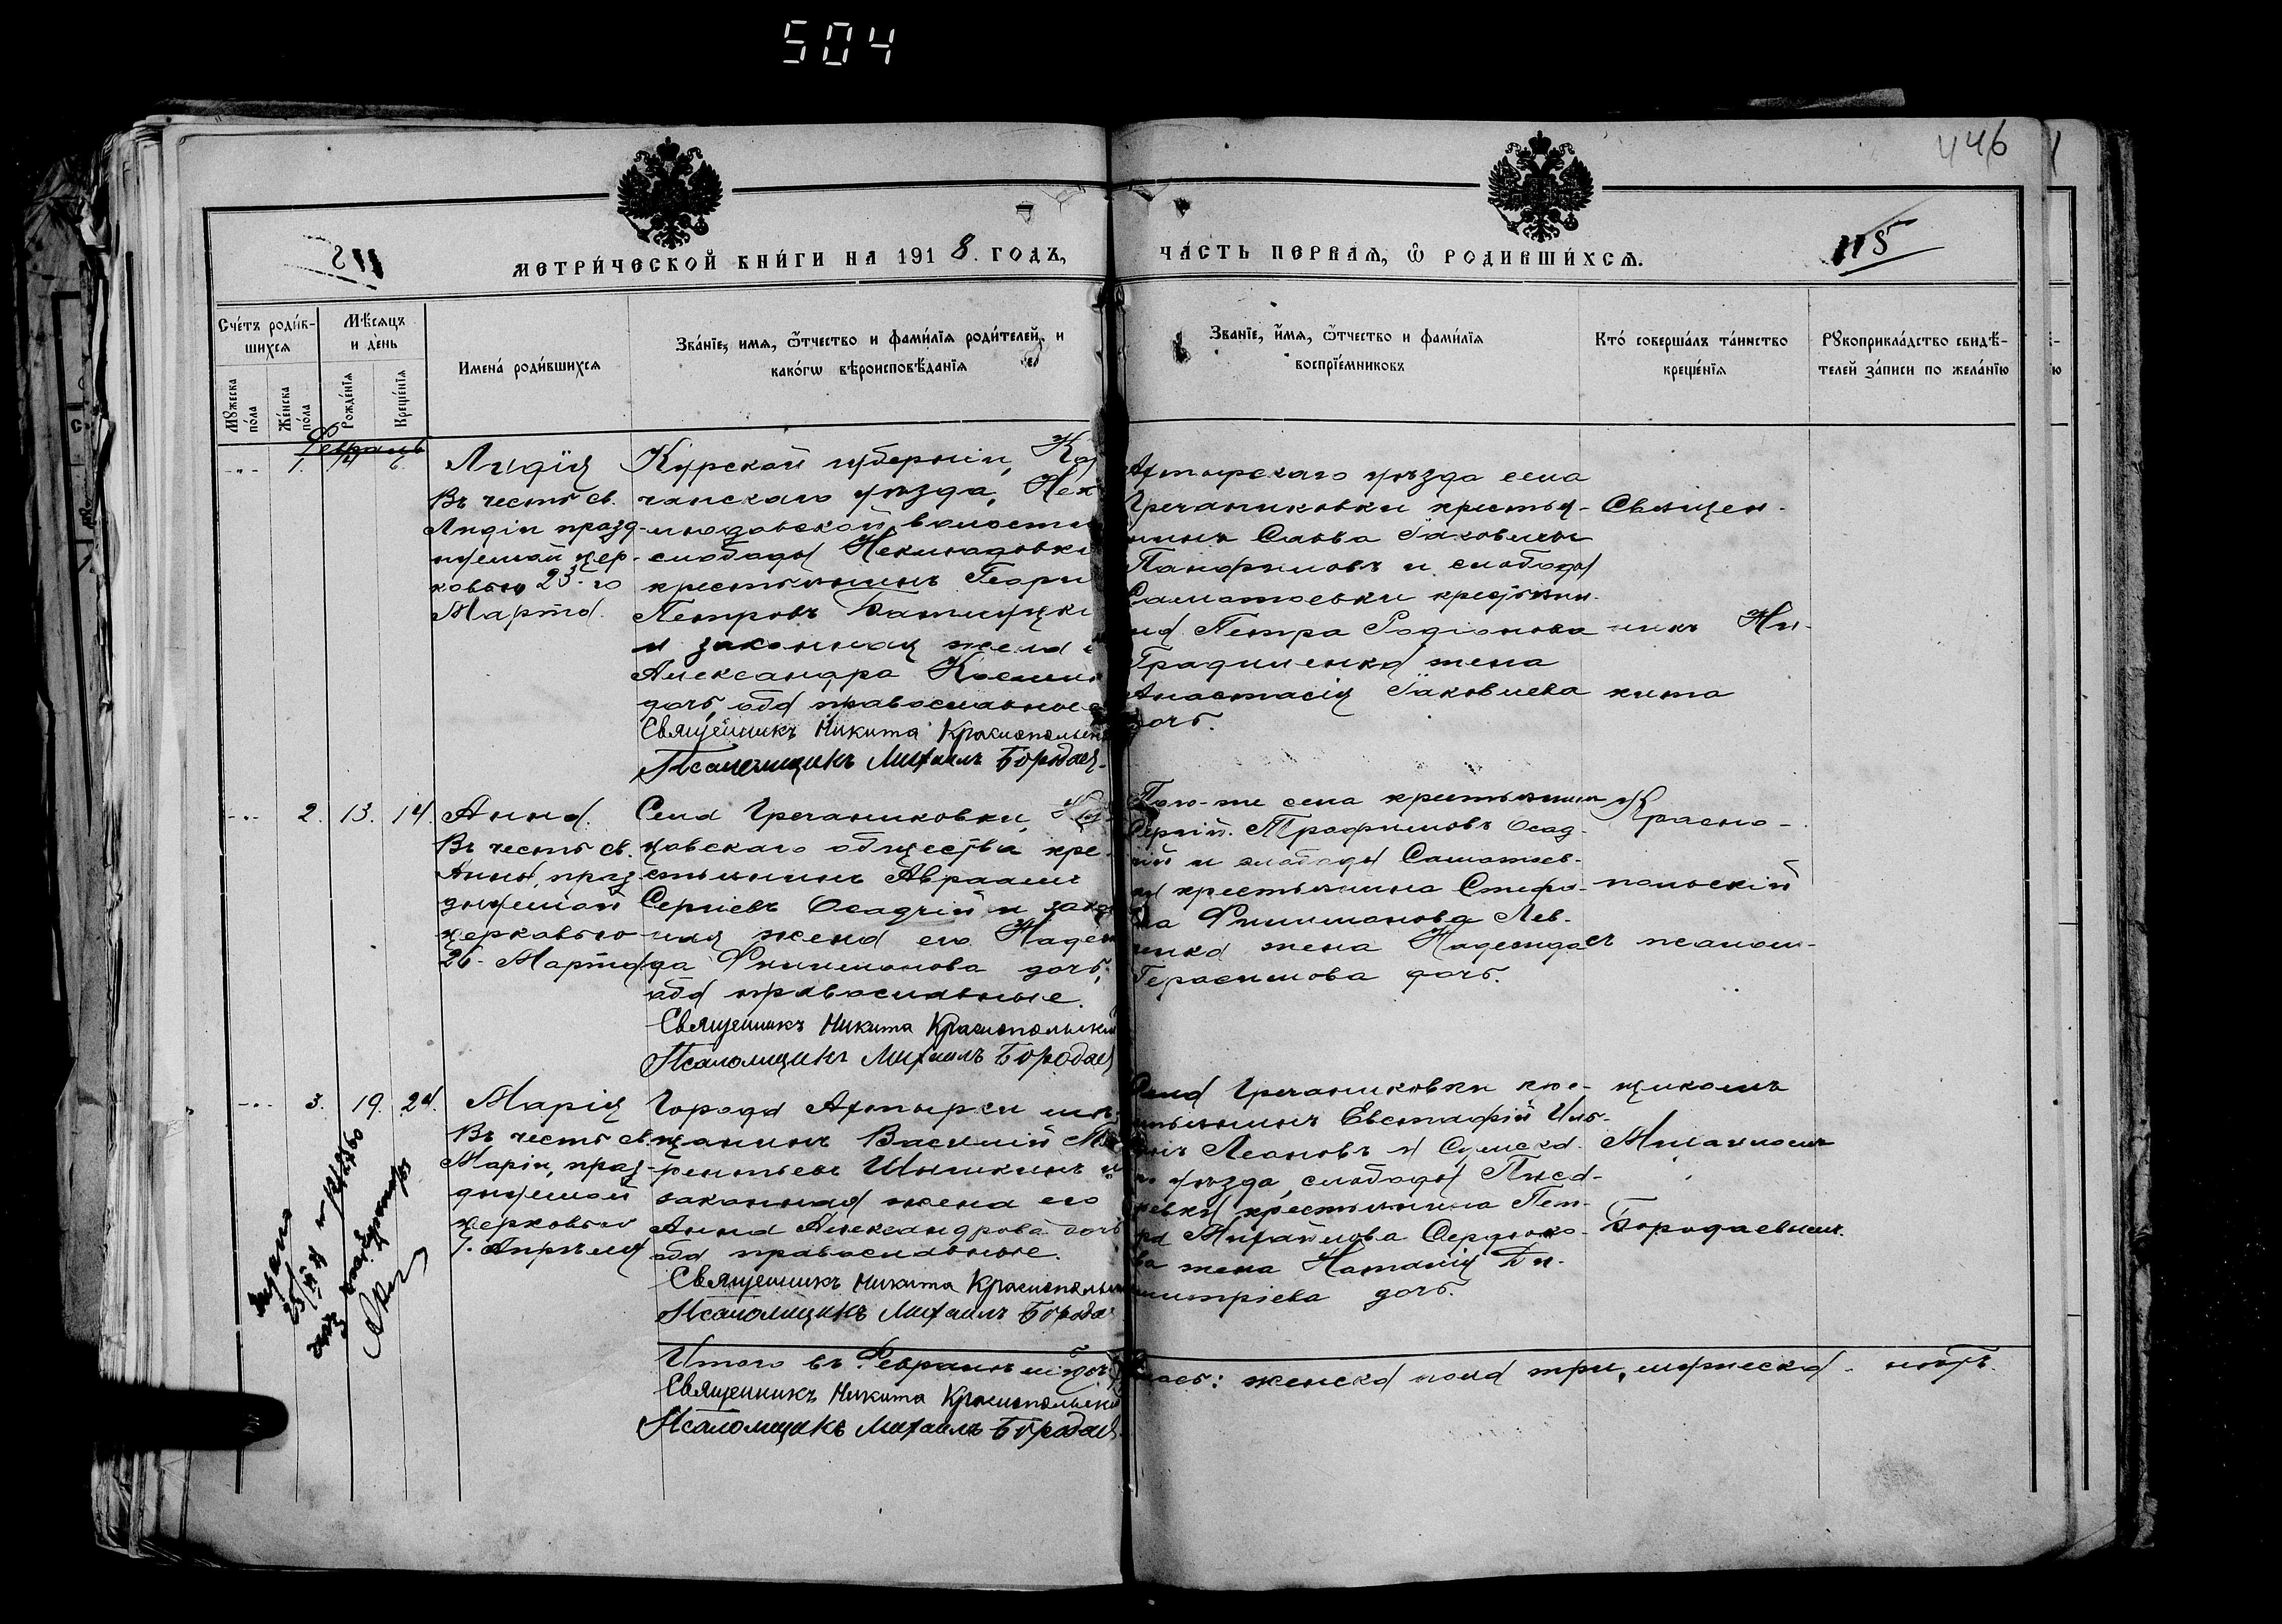 504
446
115
МЕТРИ́ЧЕСКОЙ КНИ́ГИ НА 1918. ГОДЪ,
ЧА́СТЬ ПЕРВАѦ, Ѡ҆ РОДИВШИ́ХСѦ.
Сче́тъ роди́в-
шихсѧ
Мѣ́сяцъ
и де́нь
Имена́ роди́вшихсѧ
Зва́нїе, имѧ, ѻ҆́тчество и фами́лїѧ роди́телей, и
како́гѡ вѣроисповѣ́данїѧ
Мꙋ́жеска
по́ла
Же́нска
по́ла
Рожде́нїѧ
Креще́нїѧ
Зва́нїе, и҆́мѧ, ѻ҆́тчество и фами́лїѧ
воспрїе́мниковъ
Кто́ соверша́лъ та́инство
креще́нїѧ
Рꙋкоприкла́дство свидѣ́-
телей за́писи по жела́нїю
Февраль
1.
Лидія
Въ честь св.
Лидіи празд-
нуемой цер-
ковью 23-го
Марта.
Курской губерніи, Ко
чанскаго уѣзда, Нех
людовской волости
слободы Неклюдовки
крестьянинъ Георгі
Петровъ
и законная жена е
Александра Косьми
дочь, оба православные
Священникъ Никита Краснопольск
Псаломщикъ Михаилъ Бородаев
Ахтырскаго уѣзда села
Гречаниковки крестья-
нинъ Савва Іаковлевъ
Панфиловъ и слободы
крестьяни-
на Петра Родіонова
жена
Анастасія Іаковлева
дочь.
Священ-
никъ Ни-
кита
2. 13. 14.
Анна.
Въ честь св.
Анны, праз-
днуемой
церковью
26 Марта
Села Гречаниковки,
цовскаго общества кре-
стьянинъ Авраамъ
Сергіевъ Осадчій и закон
ная жена его Надеж
да Филимонова дочь,
оба православные.
Священникъ Никита Краснопольскій
Псаломщикъ Михаилъ Бородаев
Того-же села крестьянинъ
Сергій Трофимовъ Осад-
чій и слободы
ки крестьянина Стефа-
на Филимонова Лев-
ченка жена Надежда
Герасимова дочь.
Красно-
польскій
съ псалом-
3. 19. 24.
Марія
Въ честь св.
Маріи, праз-
днуемой
церковью
1. Апрѣля
Города Ахтырки мѣ-
щанинъ Василій
рентьевъ Шишкинъ и
законная жена его
Анна Александрова дочь
оба православные.
Священникъ Никита Краснополь
Псаломщикъ Михаилъ Борода
Села Гречаниковки кре-
стьянинъ Евстафій Иль-
инъ Леоновъ и Сумска-
го уѣзда, слободы Писа-
ревки крестьянина Пет-
ра Михайлова Сердюко-
ва жена Наталія Ди-
митріева дочь.
щикомъ
Михаиломъ
Бородаевымъ.
Итого въ Февралѣ м-цѣ роди
лось: женска пола три, мужеска - нѣтъ.
Священникъ Никита Краснопольскій
Псаломщикъ Михаилъ Бородаев